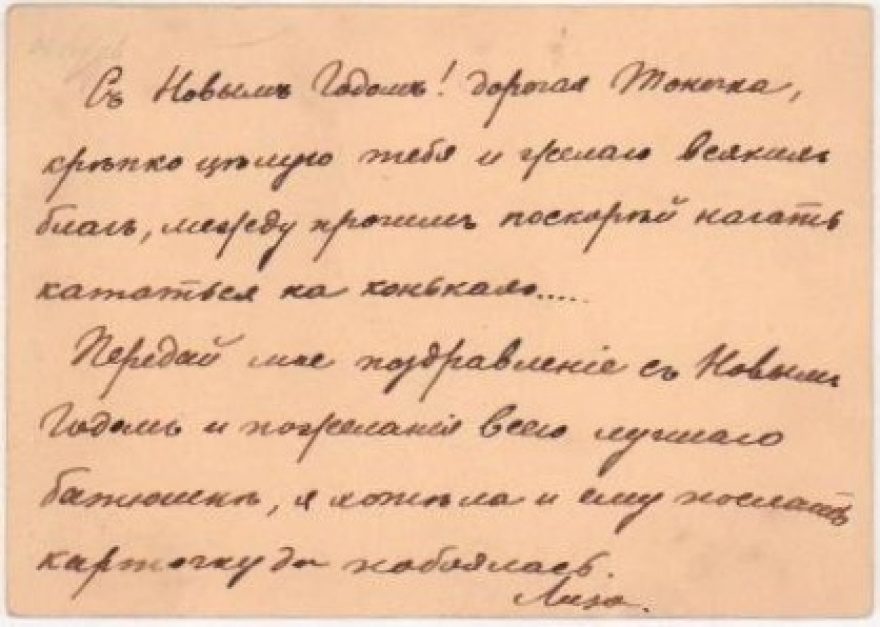 Съ Новымъ Годомъ! дорогая Тоночка,
крѣпко цѣлую тебя и желаю всякихъ
благъ, между прочимъ поскорѣй начать
кататься на конькахъ.....
Передай мое поздравленіе съ Новымъ
Годомъ и пожеланія всего лучшаго
батюшкѣ, я хотѣла и ему послать
карточку да побоялась.
Лиза.